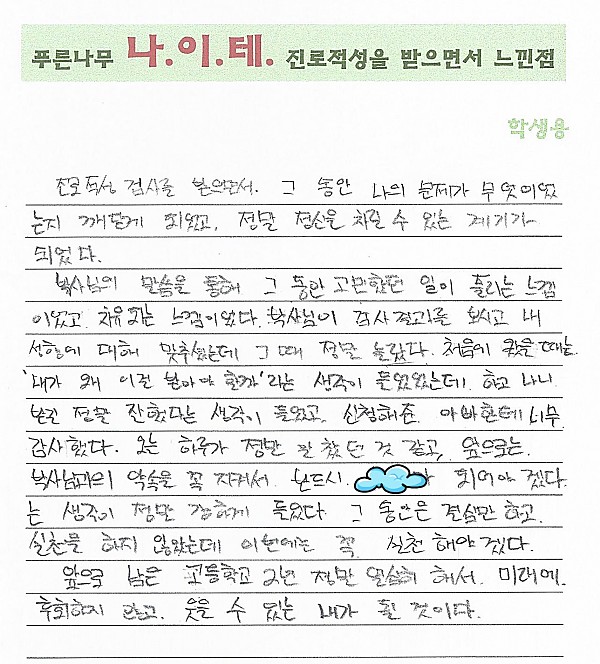 푸른나무 나.이.테. 진로적성을 받으면서 느낀점
학생용
진로적성 검사를 받으면서. 그 동안 나의 문제가 무엇이었
는지 깨닫게 되었고, 정말 정신을 차릴 수 있는 계기가
되었다.
박사님의 말씀을 통해 그 동안 고민했던 일이 풀리는 느낌
이었고 치유되는 느낌이었다. 박사님이 검사결과를 보시고 내
성향에 대해 맞추셨는데 그 때 정말 놀랐다. 처음에 왔을 때는.
'내가 왜 이런 받아야 할까'라는 생각이 들었었는데. 하고 나니
받길 정말 잘했다는 생각이 들었고, 신청해준 아빠한테 너무
감사했다. 오늘 하루가 정말 알찼던 것 같고, 앞으로는.
박사님과의 약속을 꼭 지켜서 반드시. 가 되어야 겠다.
는 생각이 정말 강하게 들었다. 그 동안은 결심만 하고.
실천을 하지 않았는데 이번에는 꼭 실천 해야겠다.
앞으로 남은 고등학교 2년 정말 열심히 해서. 미래에.
후회하지 않고. 웃을 수 있는 내가 될 것이다.